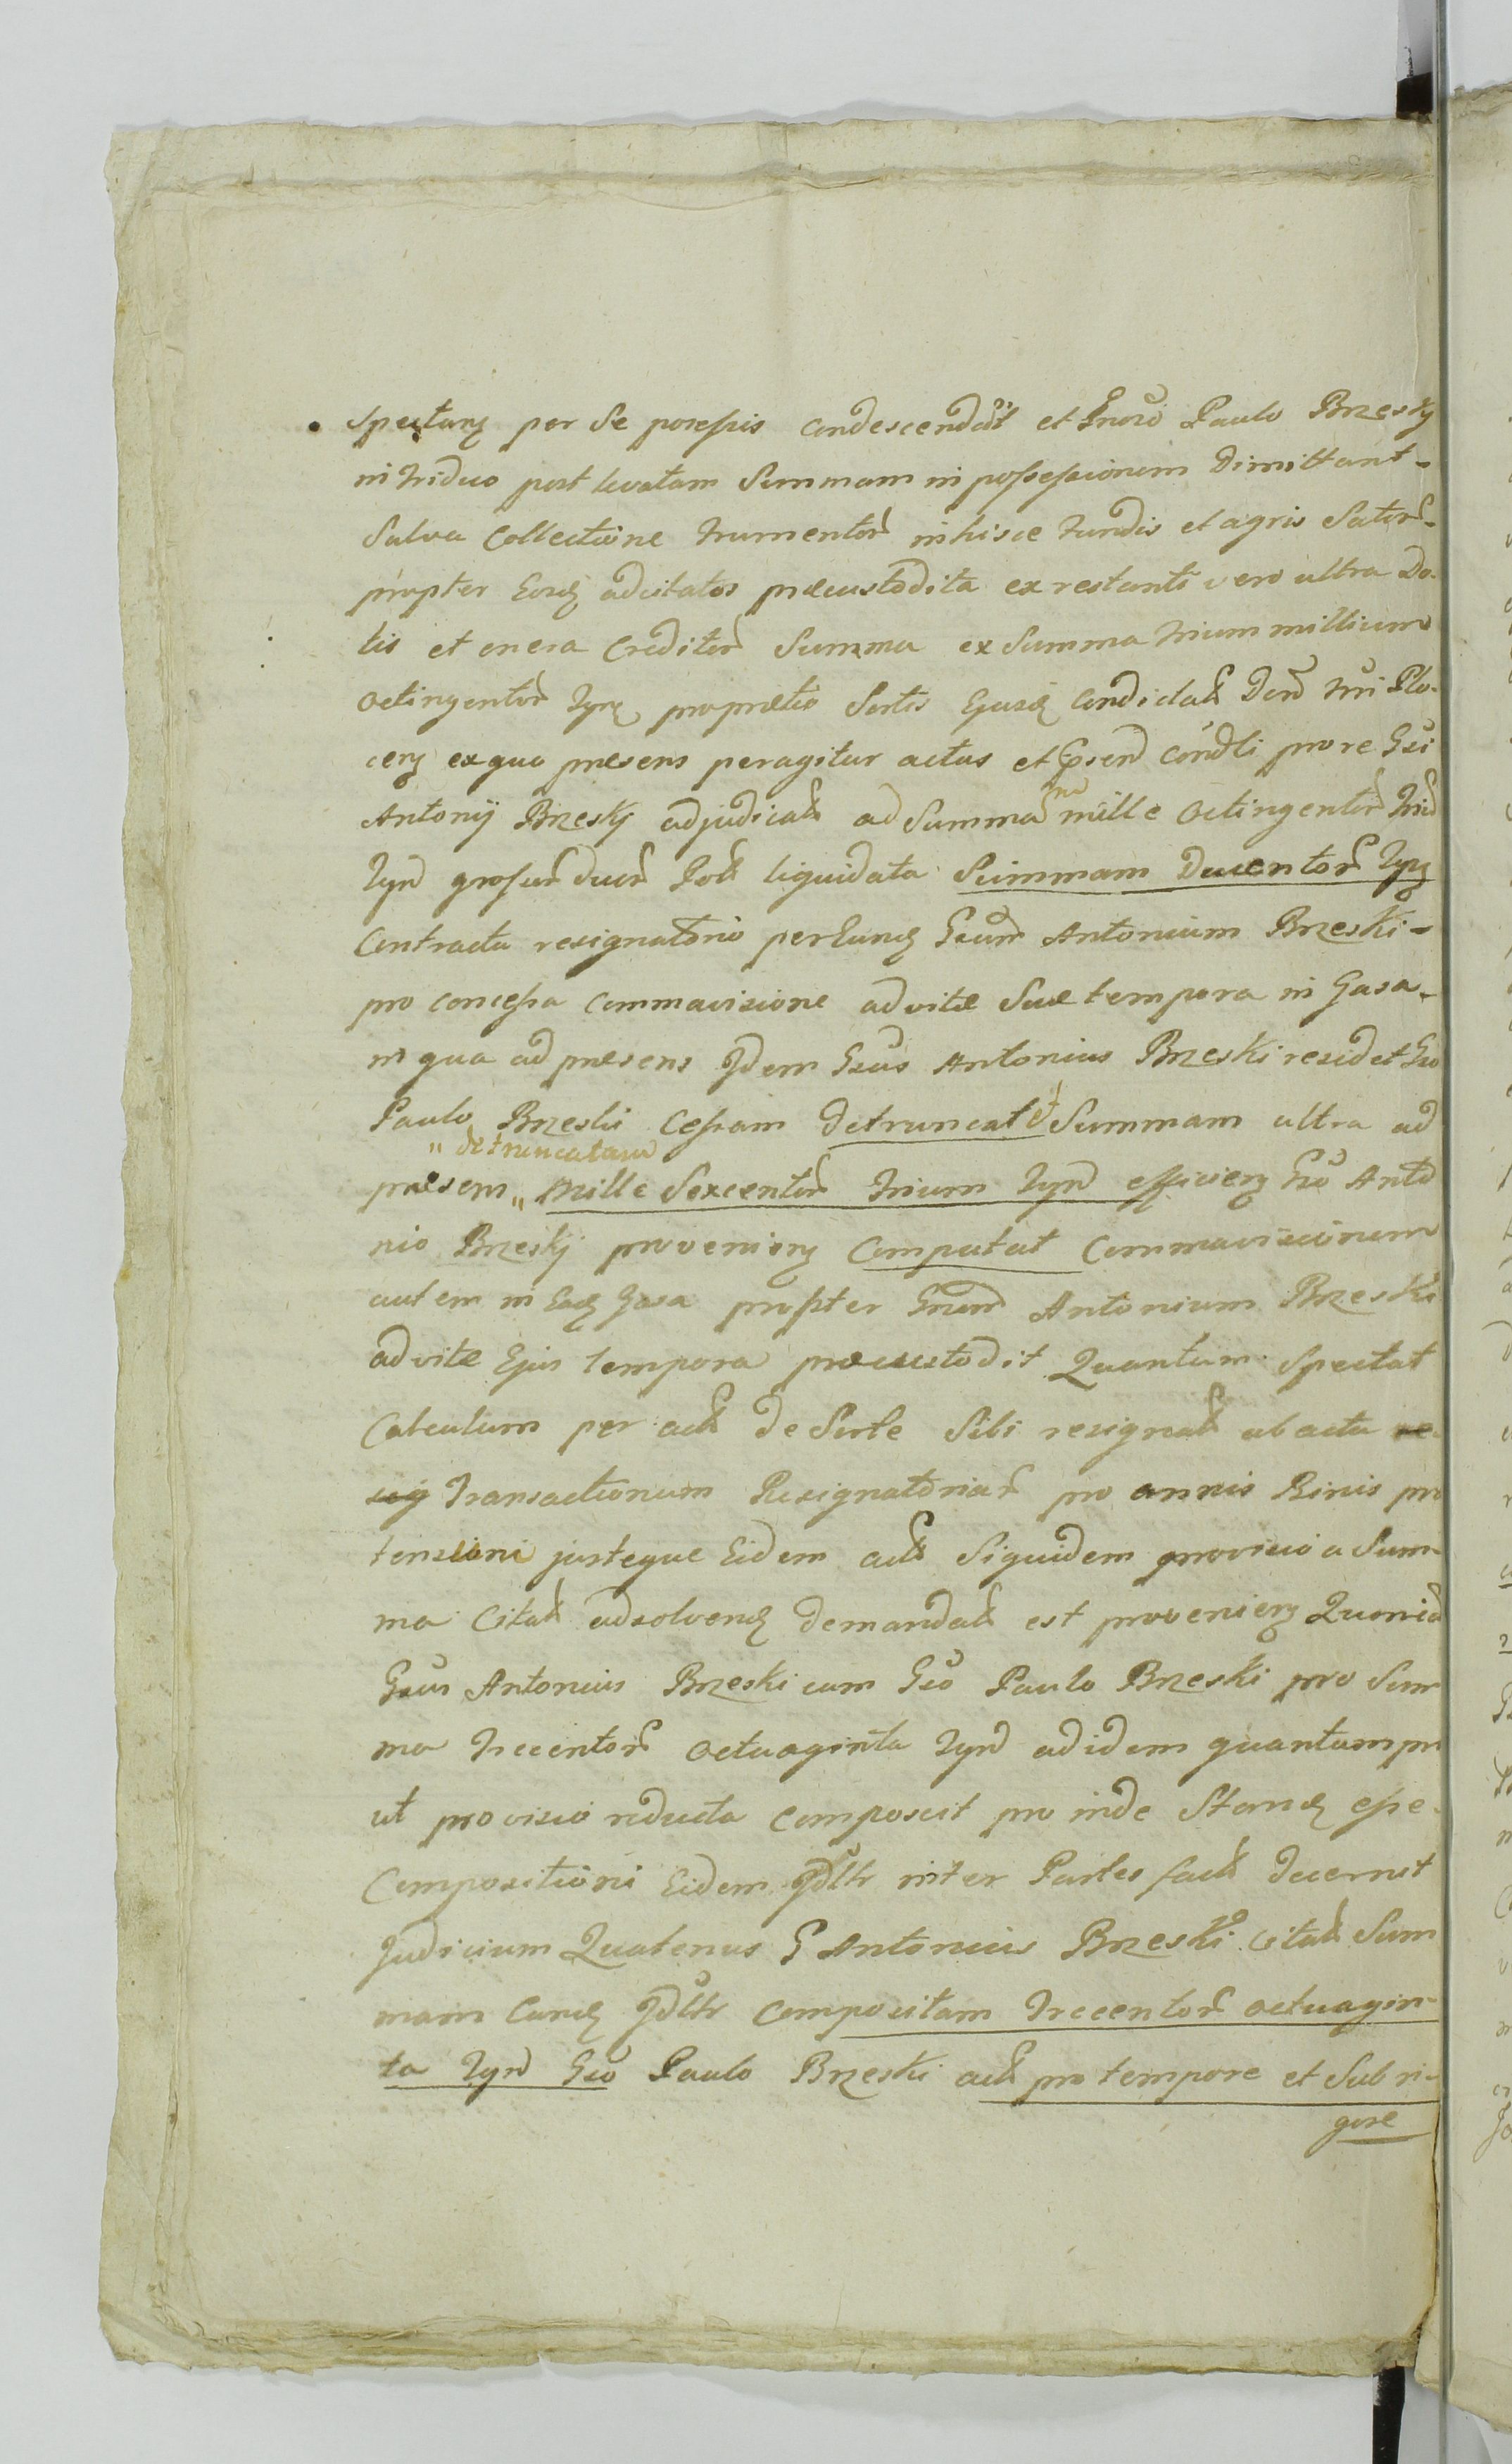 Spectang per Se posessis condescendat et Gnoso Paulo Brzesky
in triduo post levatam Summam in possessionem Dimittant-
Salva Collectione frumentor in hisce fundis et agris Sator-
propter Eosd adcitatos præcustodita ex restanti vero ultra Do-
tis et onera Creditor Summa ex Summa trium millium
Octingentor Flor pro prætio Sortis Ejusd condictak
ceng ex quo præsens peragitur actus et condti pro re Gsi
Antonij Brzesky adjudicak ad Summam mille Octingentor
liquidata Summam Ducentor
Contractu resignatorio per Eund Gsum Antonium Brzeski-
pro concessa commansione ad vitæ Suæ tempora in Gasa-
in qua ad præsens Jdem Gsus Antonius Brzeski residet Gso
Paulo Brzeski Cessam Detruncat et Summam ultra ad
" detruncatam
præsens " Mille Sexcentor trium efficieng Gso Anto
nio Brzesky provenieng Computat Commansionem
autem in Ead Gasa propter Gnum Antonium Brzeski
ad vitæ Ejus tempora præcustodit Quantum Spectat
Calculum per ack De Sorte Sibi resignak ab actu re
sig Transactionum Resignatoriar pro annis Binis pro
tensioni justeque Eidem ack Siquidem provisio a Sum-
ma Citak adsolvend demandak est provenieng Quonia
Gsus Antonius Brzeski cum Gso Paulo Brzeski pro Sum
ma Trecentor Octuaginta ad idem quantum pr
ut provisio reducta Composuit pro inde Stand esse
Compositioni Eidem inter Partes fack Decernit
Judicium Quatenus G Antonius Brzeski Citak Sum
mam Eand Compositam Trecentor Octuagin-
ta Gso Paulo Brzeski ack pro tempore et Sub ri-
gore